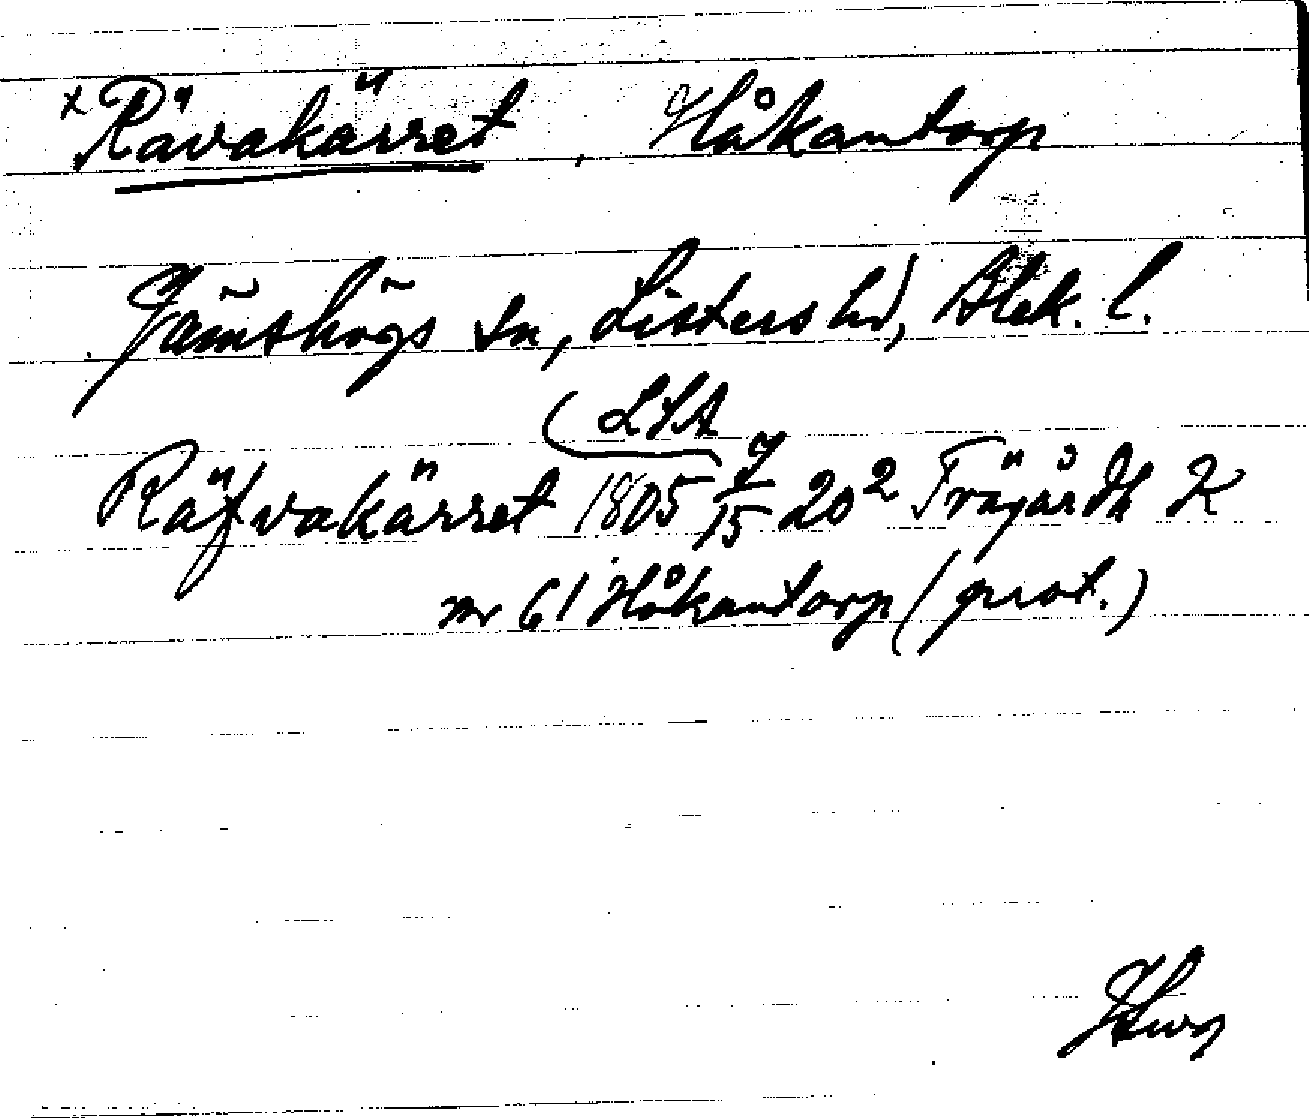 x Rävakärret, Håkantorp
Jämshögs sn, Listers hd, Blek. l.
(LSA
Räfvakärret 1805 7/15 20² Trägårdh K
nr 61 Håkantorp (prot.)